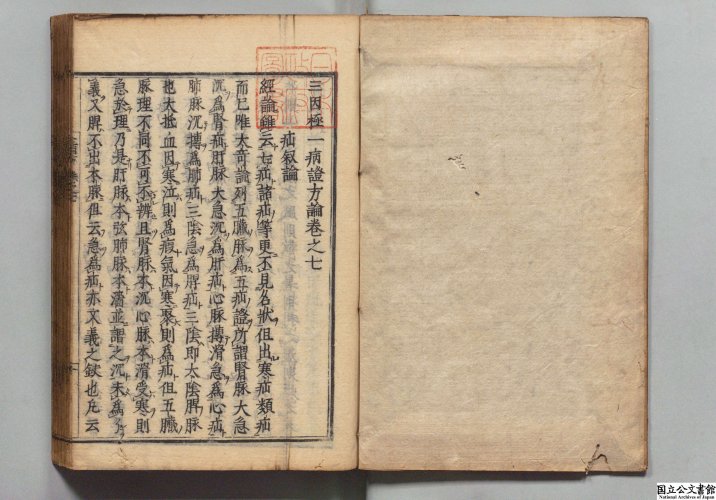 三因極一病證方論卷之七
疝叙論
經論雖云七疝諸疝等更不見名狀但出寒疝類疝
而已唯大奇論列五臟脉為五疝證所謂腎脉大急
沉為腎疝肝脉大急沉為肝疝心脉搏滑急為心疝
肺脉沉搏為肺疝三陰急為脾疝三陰即太陰脾脉
也大抵血因寒泣則為瘕氣因寒聚則為疝但五臟
脉理不同不可不辨且腎脉本沉心脉本滑受寒則
急於理乃是肝脉本弦肺脉本濇並謂之沉未為了
義又脾不出本脉但云急為疝亦文義之缺也凡云
国立公文書館
National Archives of Japan